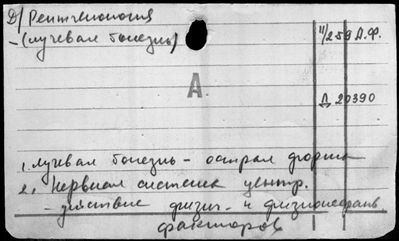 Д/ Рентгенология
11/259 А.Ф.
- (лучевая болезнь)
А
Д 20390
1. лучевая болезнь - острая форма
2. Нервная система центр.
- действие физич. и
факторов